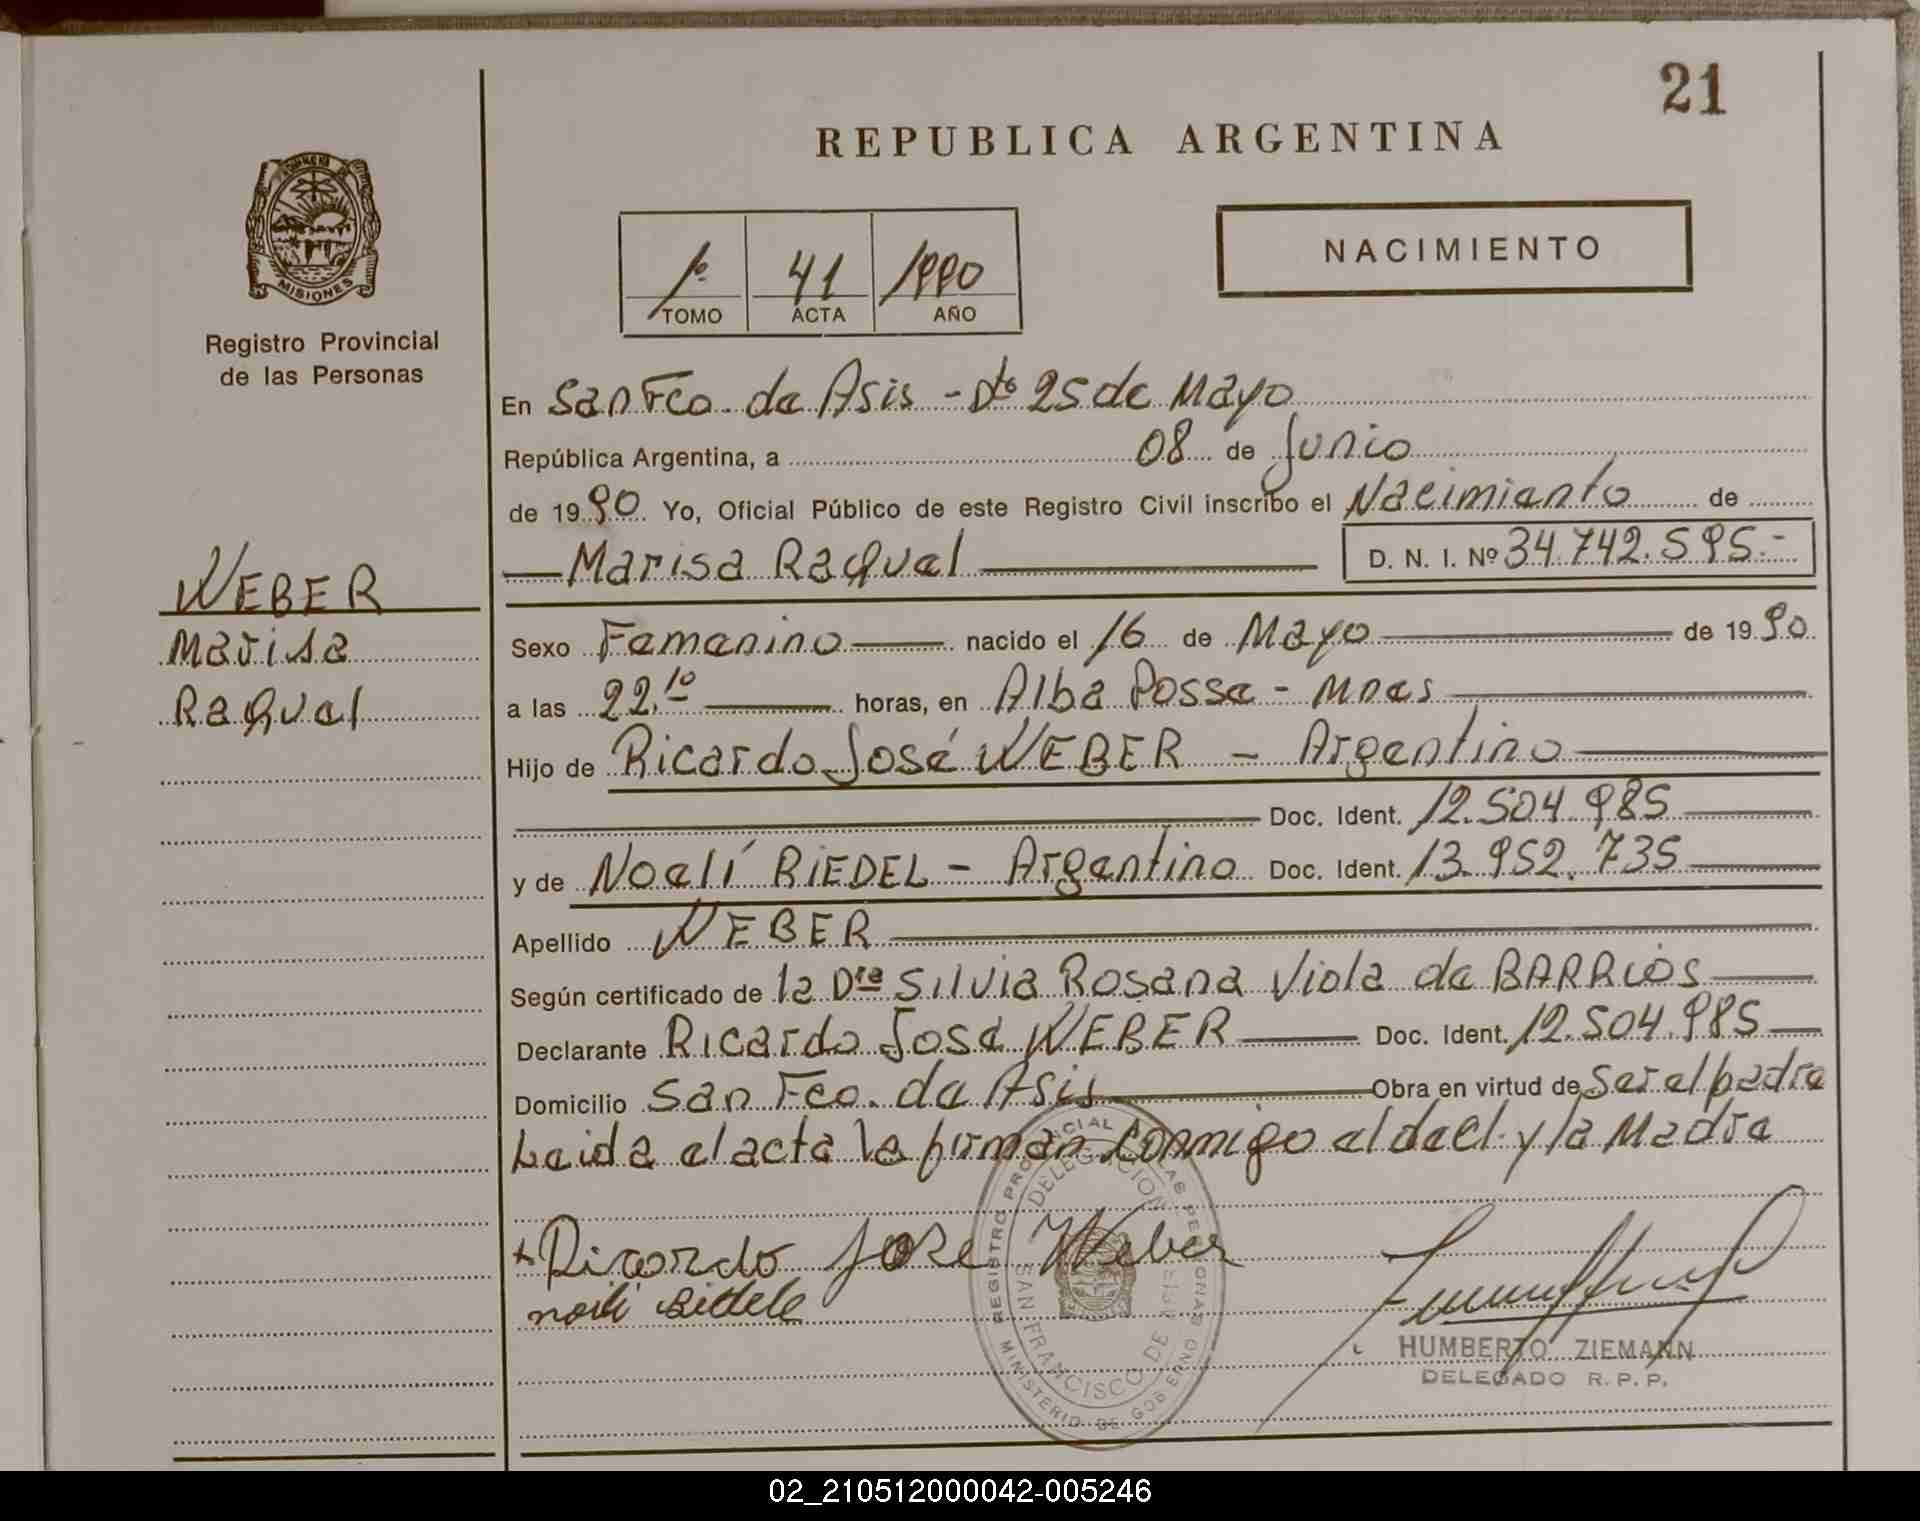 21
REPUBLICA ARGENTINA
MISIONES
Registro Provincial
de las Personas
1º 41 1990
TOMO ACTA AÑO
NACIMIENTO
En San Fco. de Asis - Dto 25 de Mayo
República Argentina, a 08 de Junio
de 1990 Yo, Oficial Público de este Registro Civil inscribo el Nacimiento de
Marisa Raquel D. N. I. Nº 34.742.595.-
WEBER
Marisa
Raquel
Sexo Femenino nacido el 16 de Mayo de 1990
a las 22.10 horas, en Alba Posse - Mnes
Hijo de Ricardo José WEBER - Argentino
Doc. Ident. 12.504.985
y de Noelí RIEDEL - Argentino Doc. Ident. 13.952.735
Apellido WEBER
Según certificado de la Dra Silvia Rosana Viola de BARRIOS
Declarante Ricardo José WEBER Doc. Ident. 12.504.985
Domicilio San Fco. de Asis Obra en virtud de Ser el padre
Leida el acta la firman conmigo el decl. y la Madre
Ricardo Jose Weber
REGISTRO PROVINCIAL DE LAS PERSONAS
DELEGACION
SAN FRANCISCO DE ASIS
MINISTERIO DE GOBIERNO
HUMBERTO ZIEMANN
DELEGADO R.P.P.
02_210512000042-005246